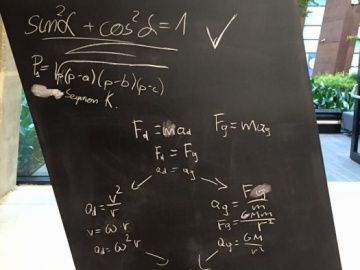 sin²α + cos²α = 1 ✓
P₁ = √p(p-a)(p-b)(p-c)
Segmon K.
F_d = ma_d F_g = ma_g
F_d = F_g
a_d = a_g
a_d = v²/r
v = ω·r
a_d = ω²r
a_g = F_g/m
F_g = GMm/r²
a_g = GM/r²